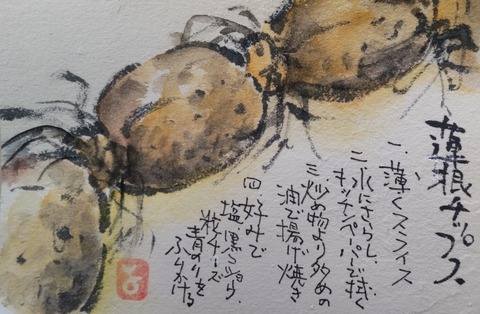 蓮根チップス
一、薄くスライス
二、水にさらし、
キッチンペーパーで拭く
三、炒め物より多めの
油で揚げ焼き
四、好みで
塩、黒こしょう、
粉チーズ
青のりを
ふりかける